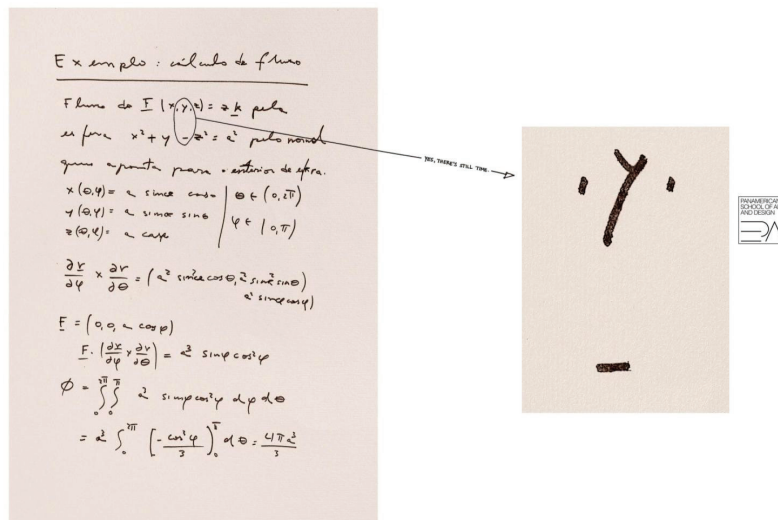 Exemplo: cálculo de fluxo
Fluxo do F (x,y,z) = z k pela
esfera x² + y - z² = a² pelo normal
que aponta para o exterior de esfera.
x(θ,φ) = a sinφ cosθ | θ ∈ (0,2π)
y(θ,φ) = a sinφ sinθ | φ ∈ (0,π)
z(θ,φ) = a cosφ
∂r/∂φ × ∂r/∂θ = (a² sin²φ cosθ, a² sin²φ sinθ
a² sinφ cosφ)
F = (0,0, a cosφ)
F · (∂r/∂φ × ∂r/∂θ) = a³ sinφ cos²φ
Φ = ∫₀²π ∫₀π a³ sinφ cos²φ dφ dθ
= a³ ∫₀²π [-cos³φ/3]₀π dθ = 4πa³/3
YES, THERE'S STILL TIME.
y
PANAMERICAN
SCHOOL OF A
AND DESIGN